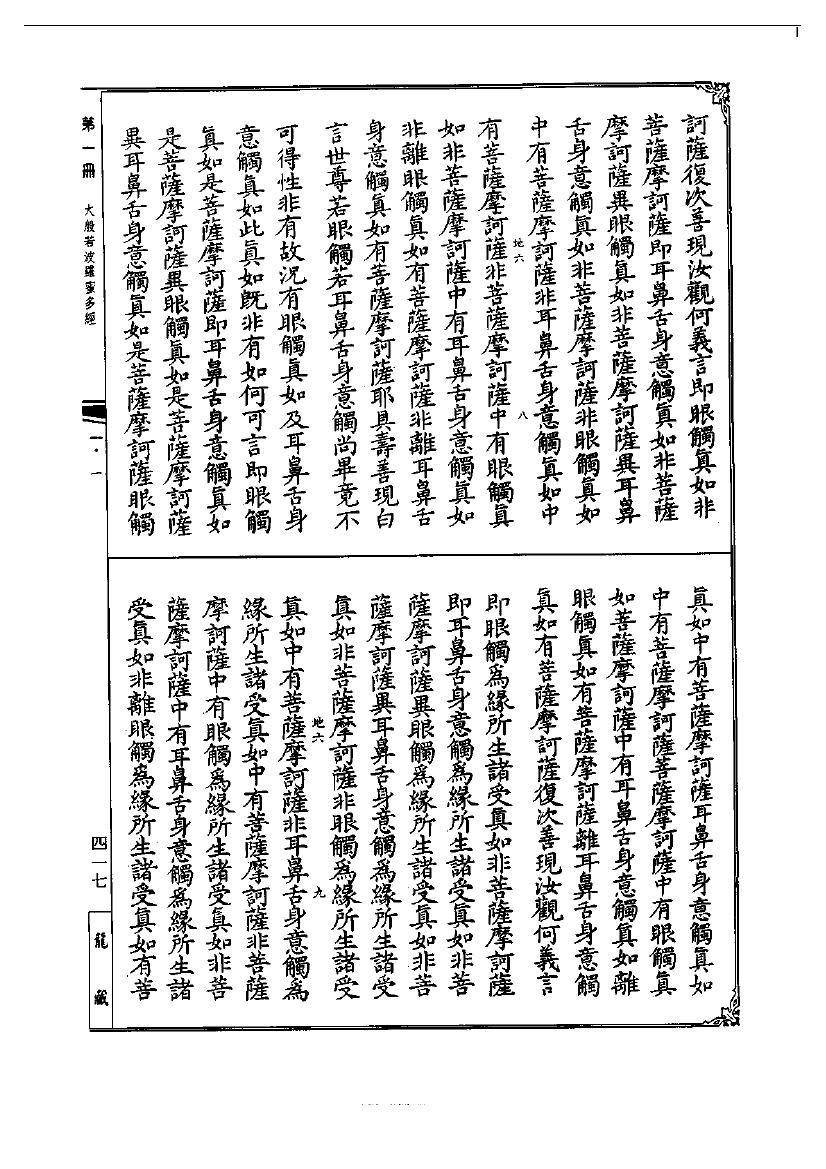 訶薩復次善現汝觀何義言即眼觸眞如非
菩薩摩訶薩即耳鼻舌身意觸眞如非菩薩
摩訶薩異眼觸眞如非菩薩摩訶薩異耳鼻
舌身意觸眞如非菩薩摩訶薩非眼觸眞如
中有菩薩摩訶薩非耳鼻舌身意觸眞如中
地六 八
有菩薩摩訶薩非菩薩摩訶薩中有眼觸眞
如非菩薩摩訶薩中有耳鼻舌身意觸眞如
非離眼觸眞如有菩薩摩訶薩非離耳鼻舌
身意觸眞如有菩薩摩訶薩耶具壽善現白
言世尊若眼觸若耳鼻舌身意觸尚畢竟不
可得性非有故況有眼觸眞如及耳鼻舌身
意觸眞如此眞如既非有如何可言即眼觸
眞如是菩薩摩訶薩即耳鼻舌身意觸眞如
是菩薩摩訶薩異眼觸眞如是菩薩摩訶薩
異耳鼻舌身意觸眞如是菩薩摩訶薩眼觸
眞如中有菩薩摩訶薩耳鼻舌身意觸眞如
中有菩薩摩訶薩菩薩摩訶薩中有眼觸眞
如菩薩摩訶薩中有耳鼻舌身意觸眞如離
眼觸眞如有菩薩摩訶薩離耳鼻舌身意觸
眞如有菩薩摩訶薩復次善現汝觀何義言
即眼觸爲緣所生諸受眞如非菩薩摩訶薩
即耳鼻舌身意觸爲緣所生諸受眞如非菩
薩摩訶薩異眼觸爲緣所生諸受眞如非菩
薩摩訶薩異耳鼻舌身意觸爲緣所生諸受
眞如非菩薩摩訶薩非眼觸爲緣所生諸受
地六 九
眞如中有菩薩摩訶薩非耳鼻舌身意觸爲
緣所生諸受眞如中有菩薩摩訶薩非菩薩
摩訶薩中有眼觸爲緣所生諸受眞如非菩
薩摩訶薩中有耳鼻舌身意觸爲緣所生諸
受眞如非離眼觸爲緣所生諸受眞如有菩
第一冊 大般若波羅蜜多經
一·一
四一七
龍藏